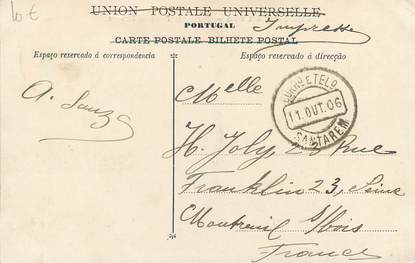 10 €
UNION POSTALE UNIVERSELLE
PORTUGAL
Impresso
CARTE POSTALE BILHETE POSTAL
Espaço reservado á correspondencia
Espaço reservado á direcção
A. Souza
Melle
CORRO E TELO
11.OUT.06
SANTAREM
H. Joly, 23 Rue
Franklin 23, Seine
Montreuil s/bois
France